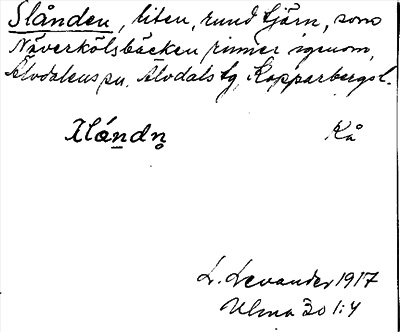 Slånden, liten, rund tjärn, som
Näverkölsbäcken rinner igenom,
Älvdalens sn, Älvdals tg, Kopparbergs l.
Kå
L. Levander 1917
Ulma 30 1:4